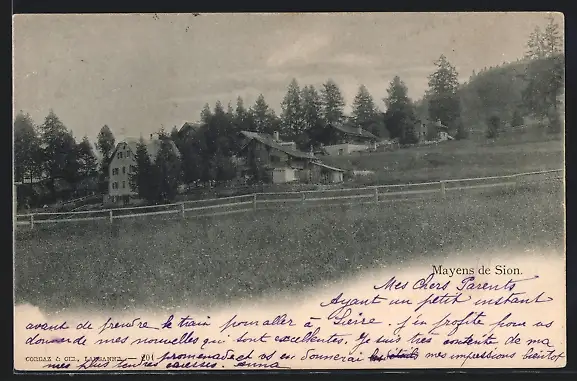 Mayens de Sion.
Mes Chers Parents
Ayant un petit instant
avant de prendre le train pour aller à Sierre. j'en profite pour vs
donner de mes nouvelles qui sont excellentes. Je suis très contente de ma
promenade et vs en donnerai les détails mes impressions bientôt
CORBAZ & CIE, LAUSANNE. — 201
mes plus tendres caresses. Anna